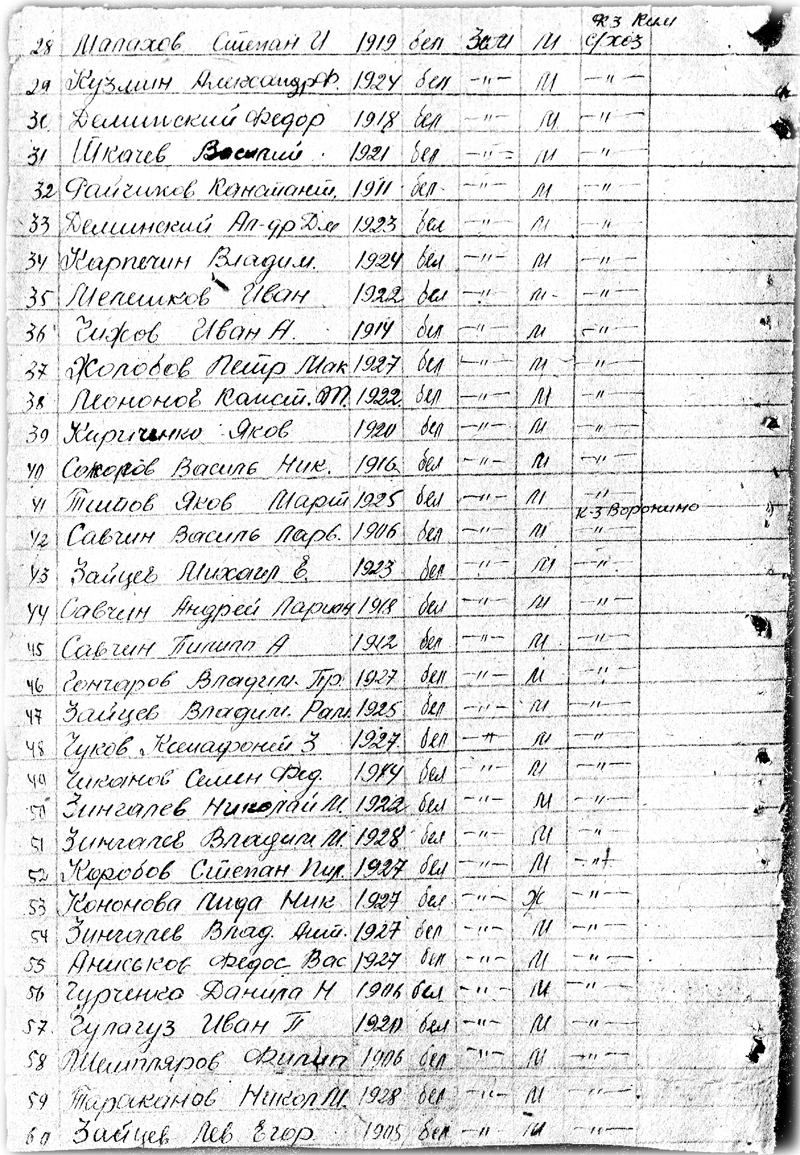 к-з Ким
28 Малахов Степан И 1919 бел Зем М с/хоз
29 Кузмин Александр Ф. 1924 бел -"- М -"-
30 Деминский Федор 1918 бел -"- М -"-
31 Шкачев Василий 1921 бел -"- М -"-
32 Файчиков Канстант. 1911 бел -"- М -"-
33 Деминский Ал-др Дм 1923 бел -"- М -"-
34 Карпечин Владим. 1924 бел -"- М -"-
35 Мелешков Иван 1922 бел -"- М -"-
36 Чижов Иван А. 1914 бел -"- М -"-
37 Жолобов Петр Мак 1927 бел -"- М -"-
38 Леононов Канст. 1922 бел -"- М -"-
39 Кириченко Яков 1920 бел -"- М -"-
40 Василь Ник. 1916 бел -"- М -"-
41 Титов Яков Март 1925 бел -"- М -"-
к-з Воронино
42 Савчин Василь Ларв. 1906 бел -"- М -"-
43 Зайцев Михаил Е. 1923 бел -"- М -"-
44 Савчин Андрей Лариан 1918 бел -"- М -"-
45 Савчин Пилип А 1912 бел -"- М -"-
46 Гончаров Владим. Пр. 1927 бел -"- М -"-
47 Зайцев Владим. Рам. 1925 бел -"- М -"-
48 Чуков З 1927 бел -"- М -"-
49 Чиканов Семен Фед. 1914 бел -"- М -"-
50 Зингалев Николай М. 1922 бел -"- М -"-
51 Зингалев Владим М. 1928 бел -"- М -"-
52 Коробов Степан 1927 бел -"- М -"-
53 Кононова Лида Ник 1927 бел -"- Ж -"-
54 Зингалев Влад. Ант. 1927 бел -"- М -"-
55 Аниськов Федос Вас 1927 бел -"- М -"-
56 Гурченко Данила Н 1906 бел -"- М -"-
57 Чулагуз Иван П 1920 бел -"- М -"-
58 Шемпляров Филип 1906 бел -"- М -"-
59 Тараканов Никол М. 1928 бел -"- М -"-
60 Зайцев Лев Егор 1905 бел -"- М -"-